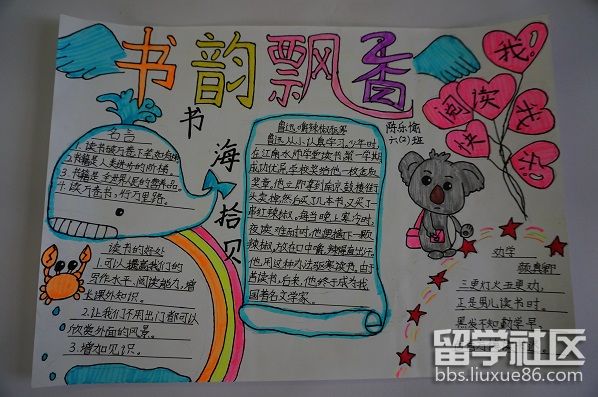 书韵飘香
书海拾贝
名言
1.读书破万卷下笔如有神
2.书籍是人类进步的阶梯.
3.书籍是全世界人民的营养品.
4.读万卷书,行万里路.
读书的好处
1.可以提高我们的
写作水平、阅读能力,增
长课外知识。
2.让我们不用出门都可以
欣赏外面的风景。
3.增加见识。
鲁迅从小认真学习。少年时,
在江南水师学堂读书,第一学期
成功优异,学校奖给他一枚金
奖章。他立即拿到南京鼓楼街
头卖掉,然后买了几本书,又买了一
串红辣椒。每当晚上寒冷时,
夜读难耐时,他便摘下一颗
辣椒,放在口中嚼,辣得直出汗。
他用这种办法驱寒读书,由于
苦读书,后来,他终于成为我
国著名文学家。
六(2)班
我
阅读
快乐
劝学
颜真卿
三更灯火五更鸡,
正是男儿读书时。
黑发不知勤学早,
留学社区
bbs.liuxue86.com